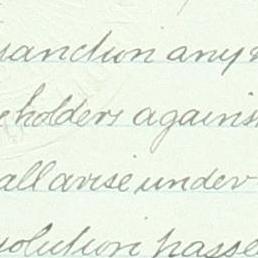 sanction any
eholders agains
all arise under
solution passe